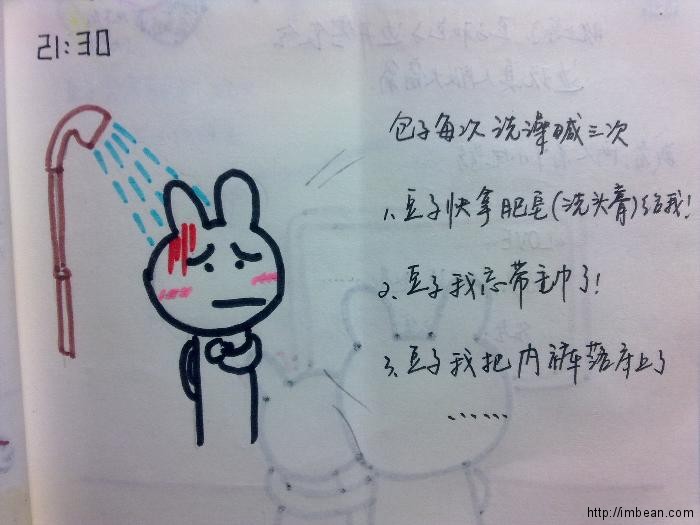 21:30
包子每次洗澡喊三次
1、豆子快拿肥皂(洗头膏)给我!
2、豆子我忘带毛巾了!
3、豆子我把内裤落床上了
......
http://imbean.com